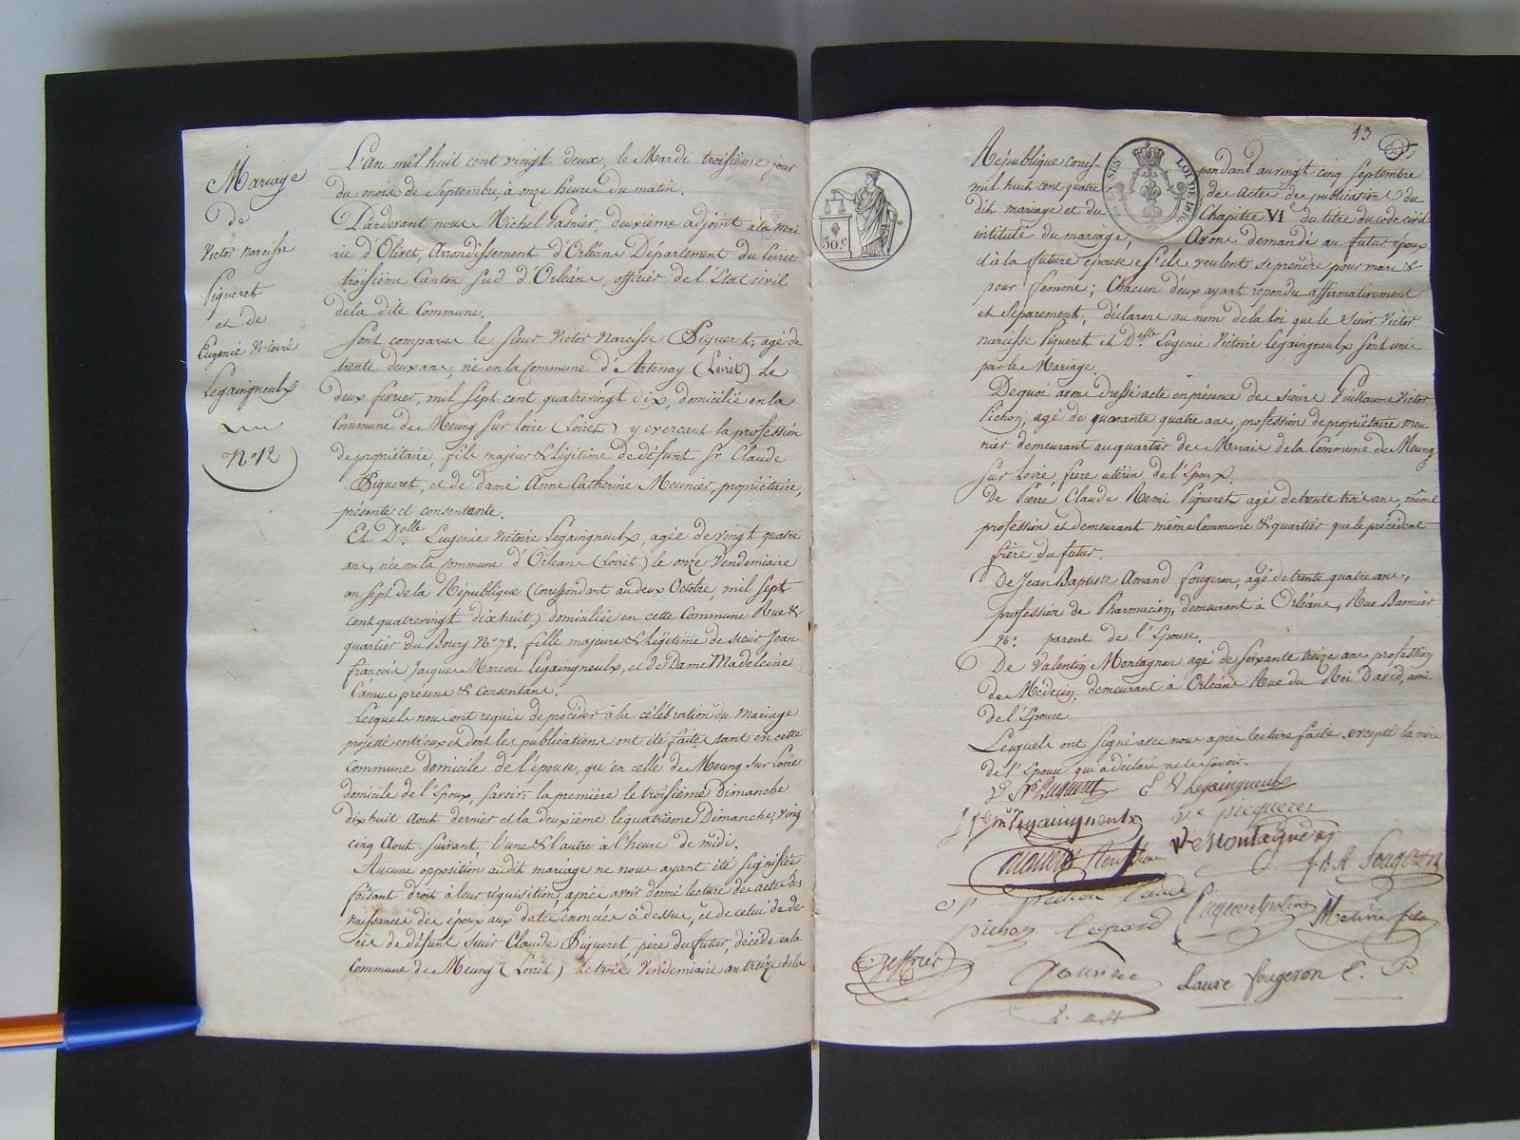 Mariage
de
Victor Narcisse
Piqueret
et de
Eugenie Victoire
Legaingneulx
N° 12
L'an mil huit cent vingt deux, le Mardi troisième jour
du mois de Septembre, à onze heures du matin.
Pardevant nous Michel Pasnier, deuxième adjoint à la mai
rie d'Olivet, Arrondissement d'Orléans Département du Loiret
troisième Canton Sud d'Orléans, officier de l'Etat civil
de la dite Commune.
Sont comparus le Sieur Victor Narcisse Piqueret, agé de
trente deux ans, né en la Commune d'Artenay (Loiret) le
deux fevrier, mil sept cent quatrevingt dix, domicilié en la
Commune de Meung sur Loire (Loiret) y exercant la profession
de propriétaire, fils majeur & légitime de défunt Sr Claude
Piqueret, et de dame Anne Catherine Meunier, propriétaire,
présente et consentante.
Et Dlle Eugenie Victoire Legaingneulx, agée de vingt quatre
ans, née en la Commune d'Orleans (Loiret) le onze Vendemiaire
an sept de la République (Correspondant au deux Octobre, mil sept
cent quatrevingt dixhuit,) domiciliée en cette Commune Rue &
quartier du Bourg N° 78. fille majeure & légitime de sieur Jean
francois Jacques Marcou Legaingneulx, et de Dame Madeleine
Camus présens & Consentans.
Lesquels nous ont requis de procéder à la célébration du Mariage
projetté entr'eux et dont les publications ont été faites tant en cette
Commune domicile de l'épouse, qu'en celle de Meung Sur Loire
domicile de l'Epoux, Savoir: la première le troisième Dimanche
dixhuit Aout dernier et la deuxième le quatrième Dimanche, vingt
cinq Aout Suivant, l'une & l'autre à l'heure de midi.
Aucune opposition audit mariage ne nous ayant été signifiée
faisant droit à leur réquisition, après avoir donné lecture des actes des
naissances des époux aux dates énoncées ci dessus, et de celui de dé
cès de défunt Sieur Claude Piqueret, père du futur, décédé en la
Commune de Meung (Loiret) le trois Vendemiaire an treize de la
13
LOI DE 1816
50 c
République corres- pondant au vingt cinq Septembre
mil huit cent quatre des Actes de publications du
dit mariage et du Chapitre VI du titre du code civil
intitulé du mariage, Avons demandé au futur époux
& à la future épouse s'ils veulent se prendre pour mari &
pour femme; Chacun d'eux ayant répondu affirmativement
et Séparement, déclarons au nom de la loi que le Sieur Victor
Narcisse Piqueret et Dlle Eugenie Victoire Legaingneulx sont unis
par le Mariage.
De quoi avons dressé acte en présence de sieurs Guillaume Victor
Pichon, agé de quarante quatre ans, profession de propriétaire meu
nier demeurant au quartier des Marais de la Commune de Meung
Sur Loire, frère utérin de l'Epoux.
De Pierre Claude Remi Piqueret agé de trente trois ans, même
profession et demeurant même Commune & quartier que le précédent
frère du futur.
De Jean Baptiste Amand fougeron, agé de trente quatre ans,
profession de Pharmacien, demeurant à Orléans, Rue Bannier
parent de l'Epouse.
De Valentin Montagnon agé de soixante treize ans profession
de Médecin, demeurant à Orléans Rue du Roi David, ami
de l'Epouse
Lesquels ont signé avec nous après lecture faite excepté la mère
de l'Epoux qui a déclaré ne le savoir.
E V Legaingneulx
Legaingneulx
Fougeron
pichon
Laure fougeron E. P.